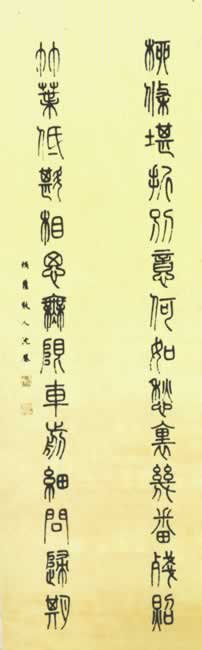 柳條堪折別意何如愁裏幾番殘照
竹葉低斟相思無限車前細問歸期
人沈